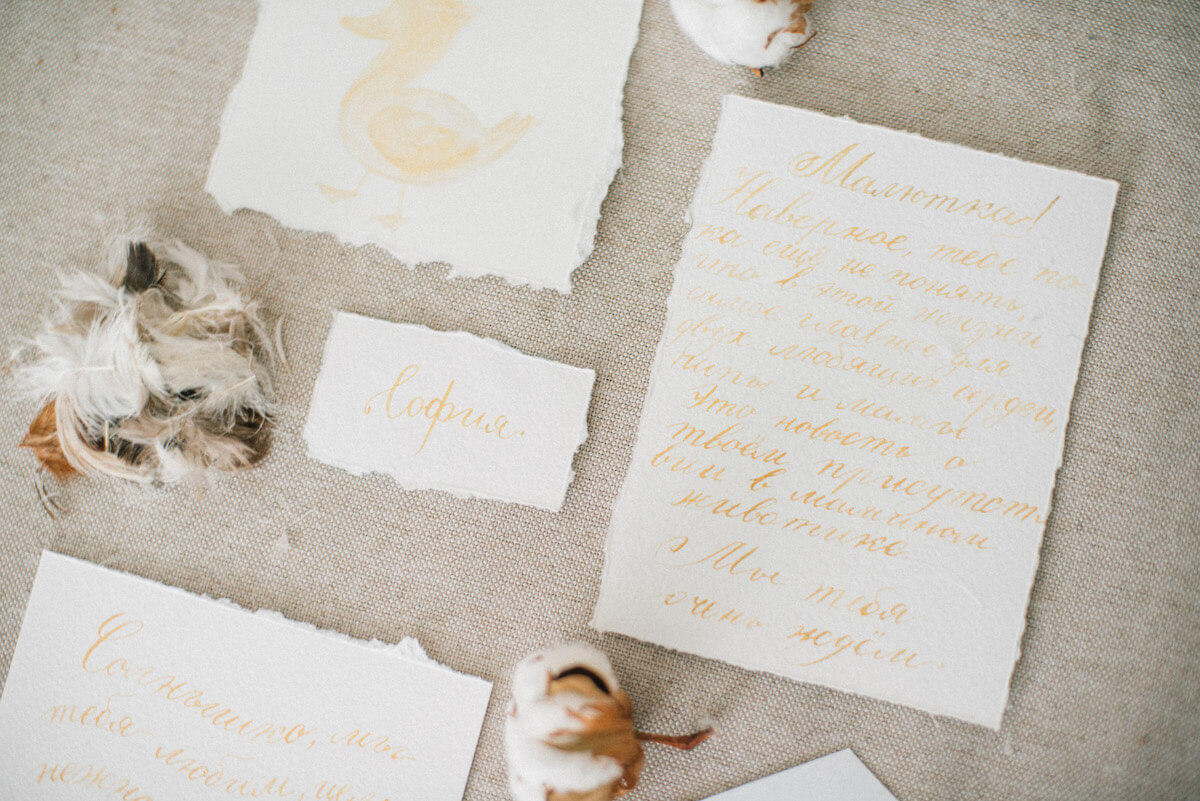 Малютка!
Наверное, тебе по
ка ещё не понять,
что в этой жизни
самое главное для
двух любящих сердец,
папы и мамы
Это новость о
твоём присутст
вии в мамином
животике
Мы тебя
очень ждём.
София.
Солнышко, мы
тебя любим,
нежно